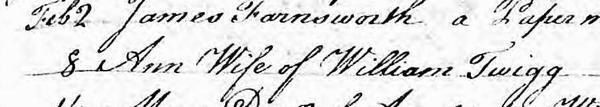 Feb 2 James Farnsworth a Paper m
8 Ann Wife of William Twigg